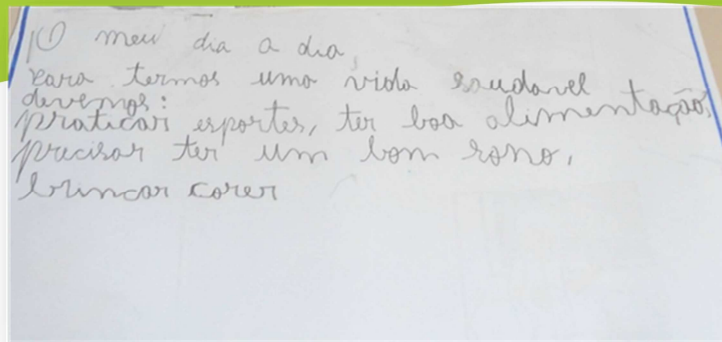 O meu dia a dia,
para termos uma vida saudavel
devemos:
praticar esportes, ter boa alimentação,
precisar ter um bom sono,
brincar corer